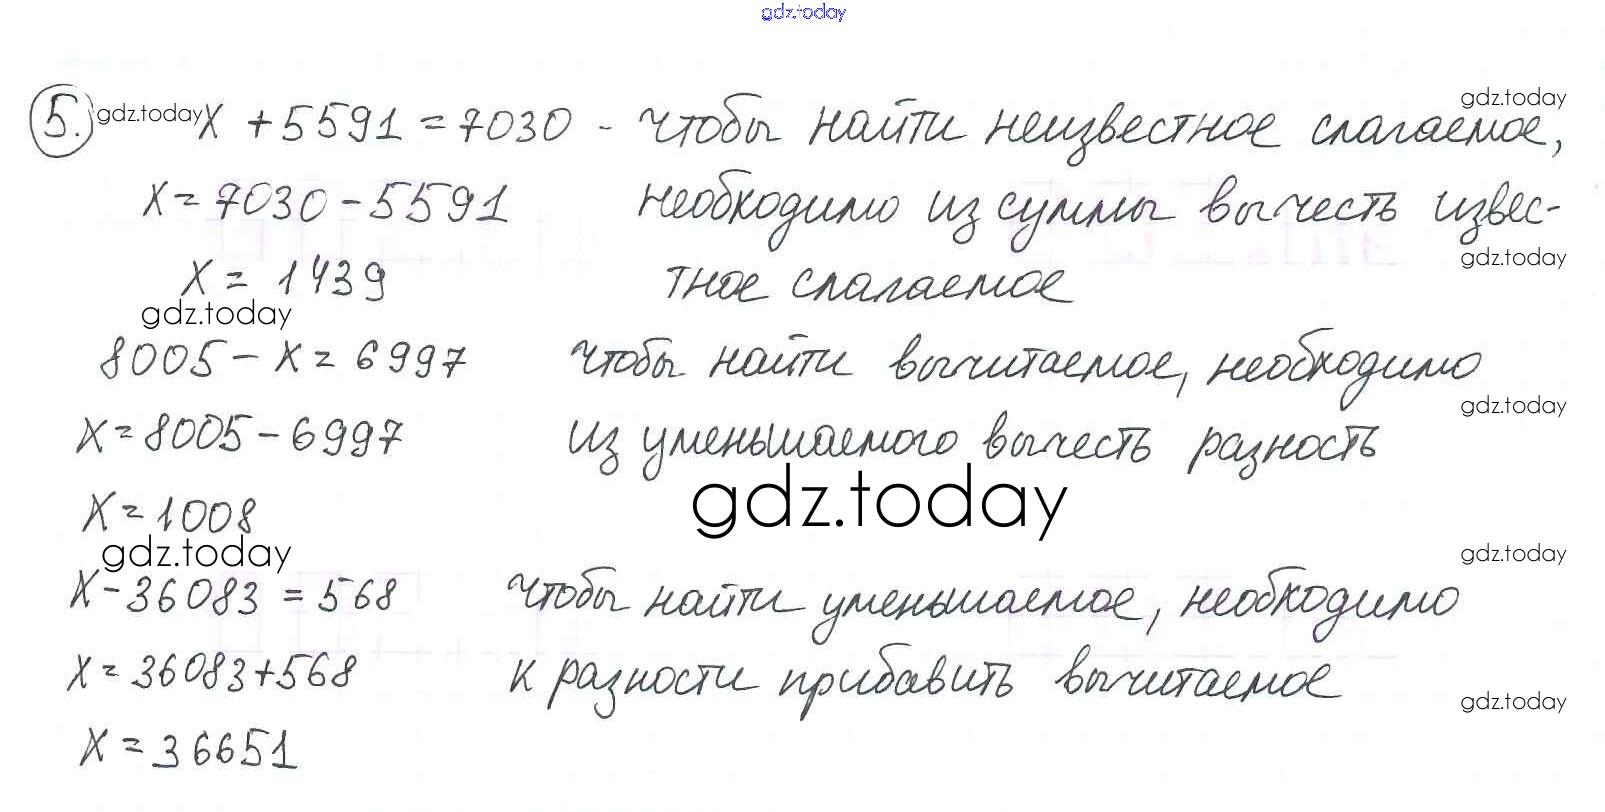 gdz.today
5. gdz.today x + 5591 = 7030 - чтобы найти неизвестное слагаемое,
gdz.today
x = 7030 - 5591 необходимо из суммы вычесть извес-
gdz.today
x = 1439 тное слагаемое
gdz.today
8005 - x = 6997 чтобы найти вычитаемое, необходимо
gdz.today
x = 8005 - 6997 из уменьшаемого вычесть разность
gdz.today
x = 1008
gdz.today
gdz.today
x - 36083 = 568 чтобы найти уменьшаемое, необходимо
x = 36083 + 568 к разности прибавить вычитаемое
gdz.today
x = 36651